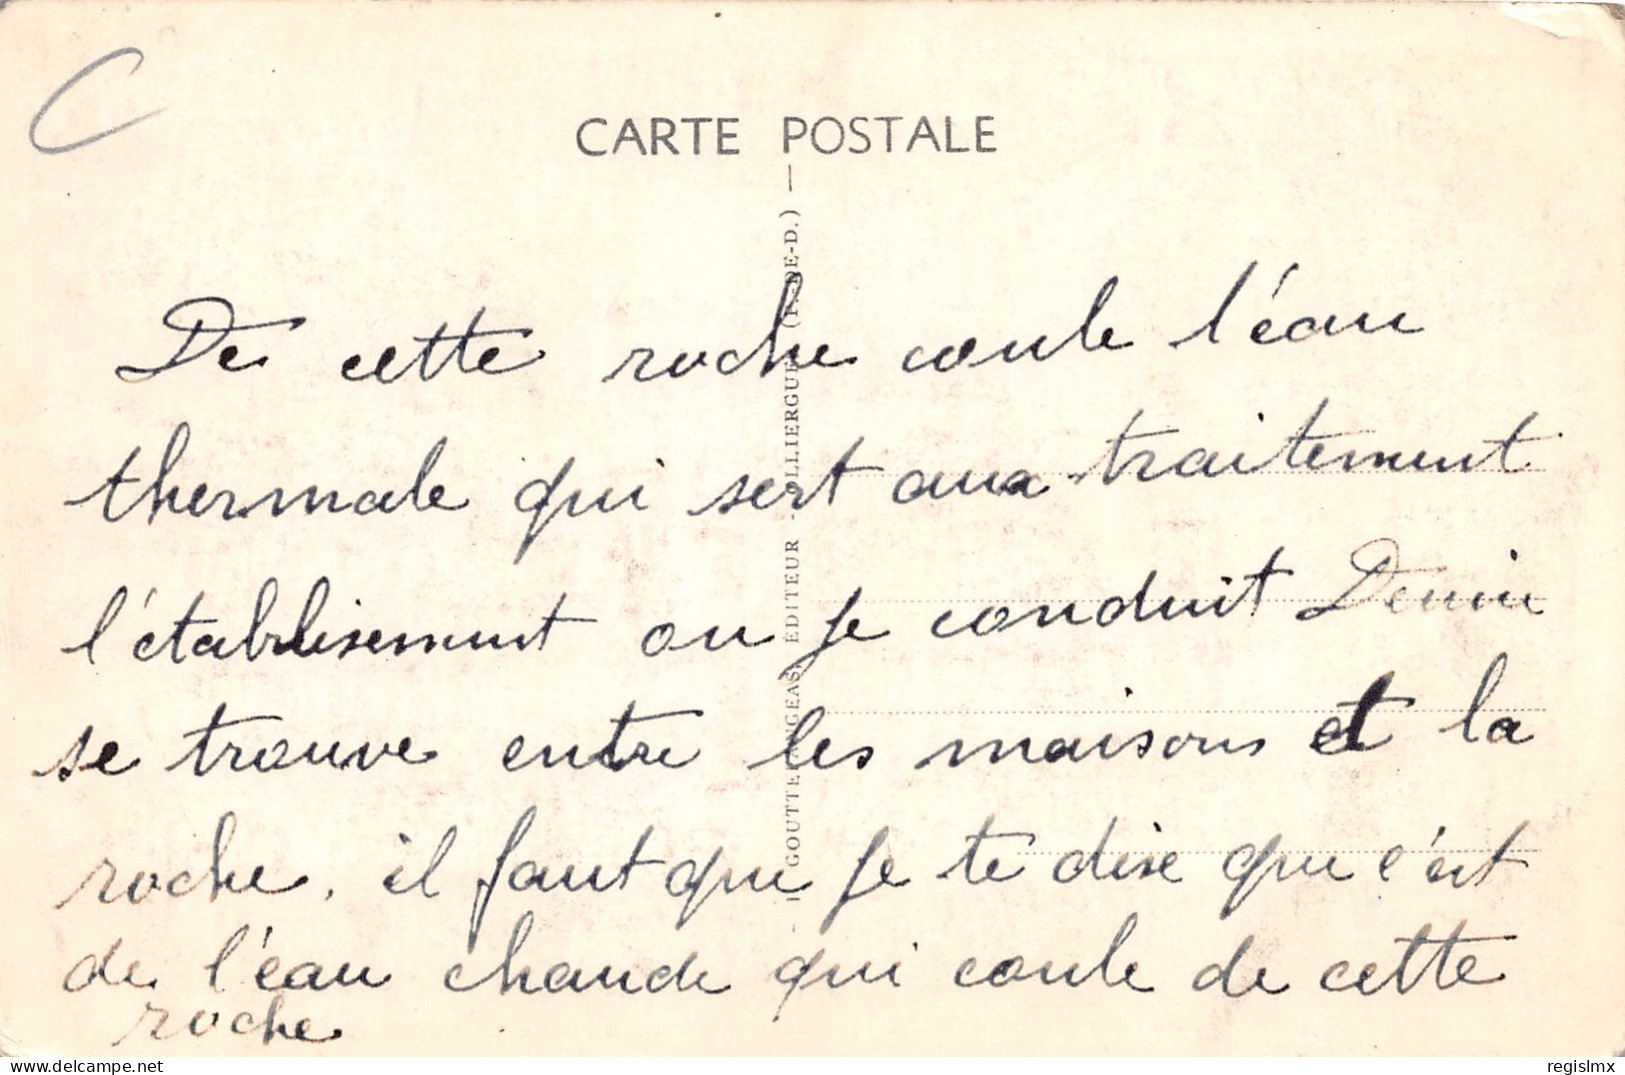 C
CARTE POSTALE
De cette roche coule l'éau
thermale qui sert aux traitement
l'établisement ou je conduit Denin
se trouve entre les maisons et la
roche, il faut que je te dise que c'est
de l'éau chaude qui coule de cette
roche
GOUTTE ÉDITEUR OLLIERGUE (P.-DE-D.)
regislmx